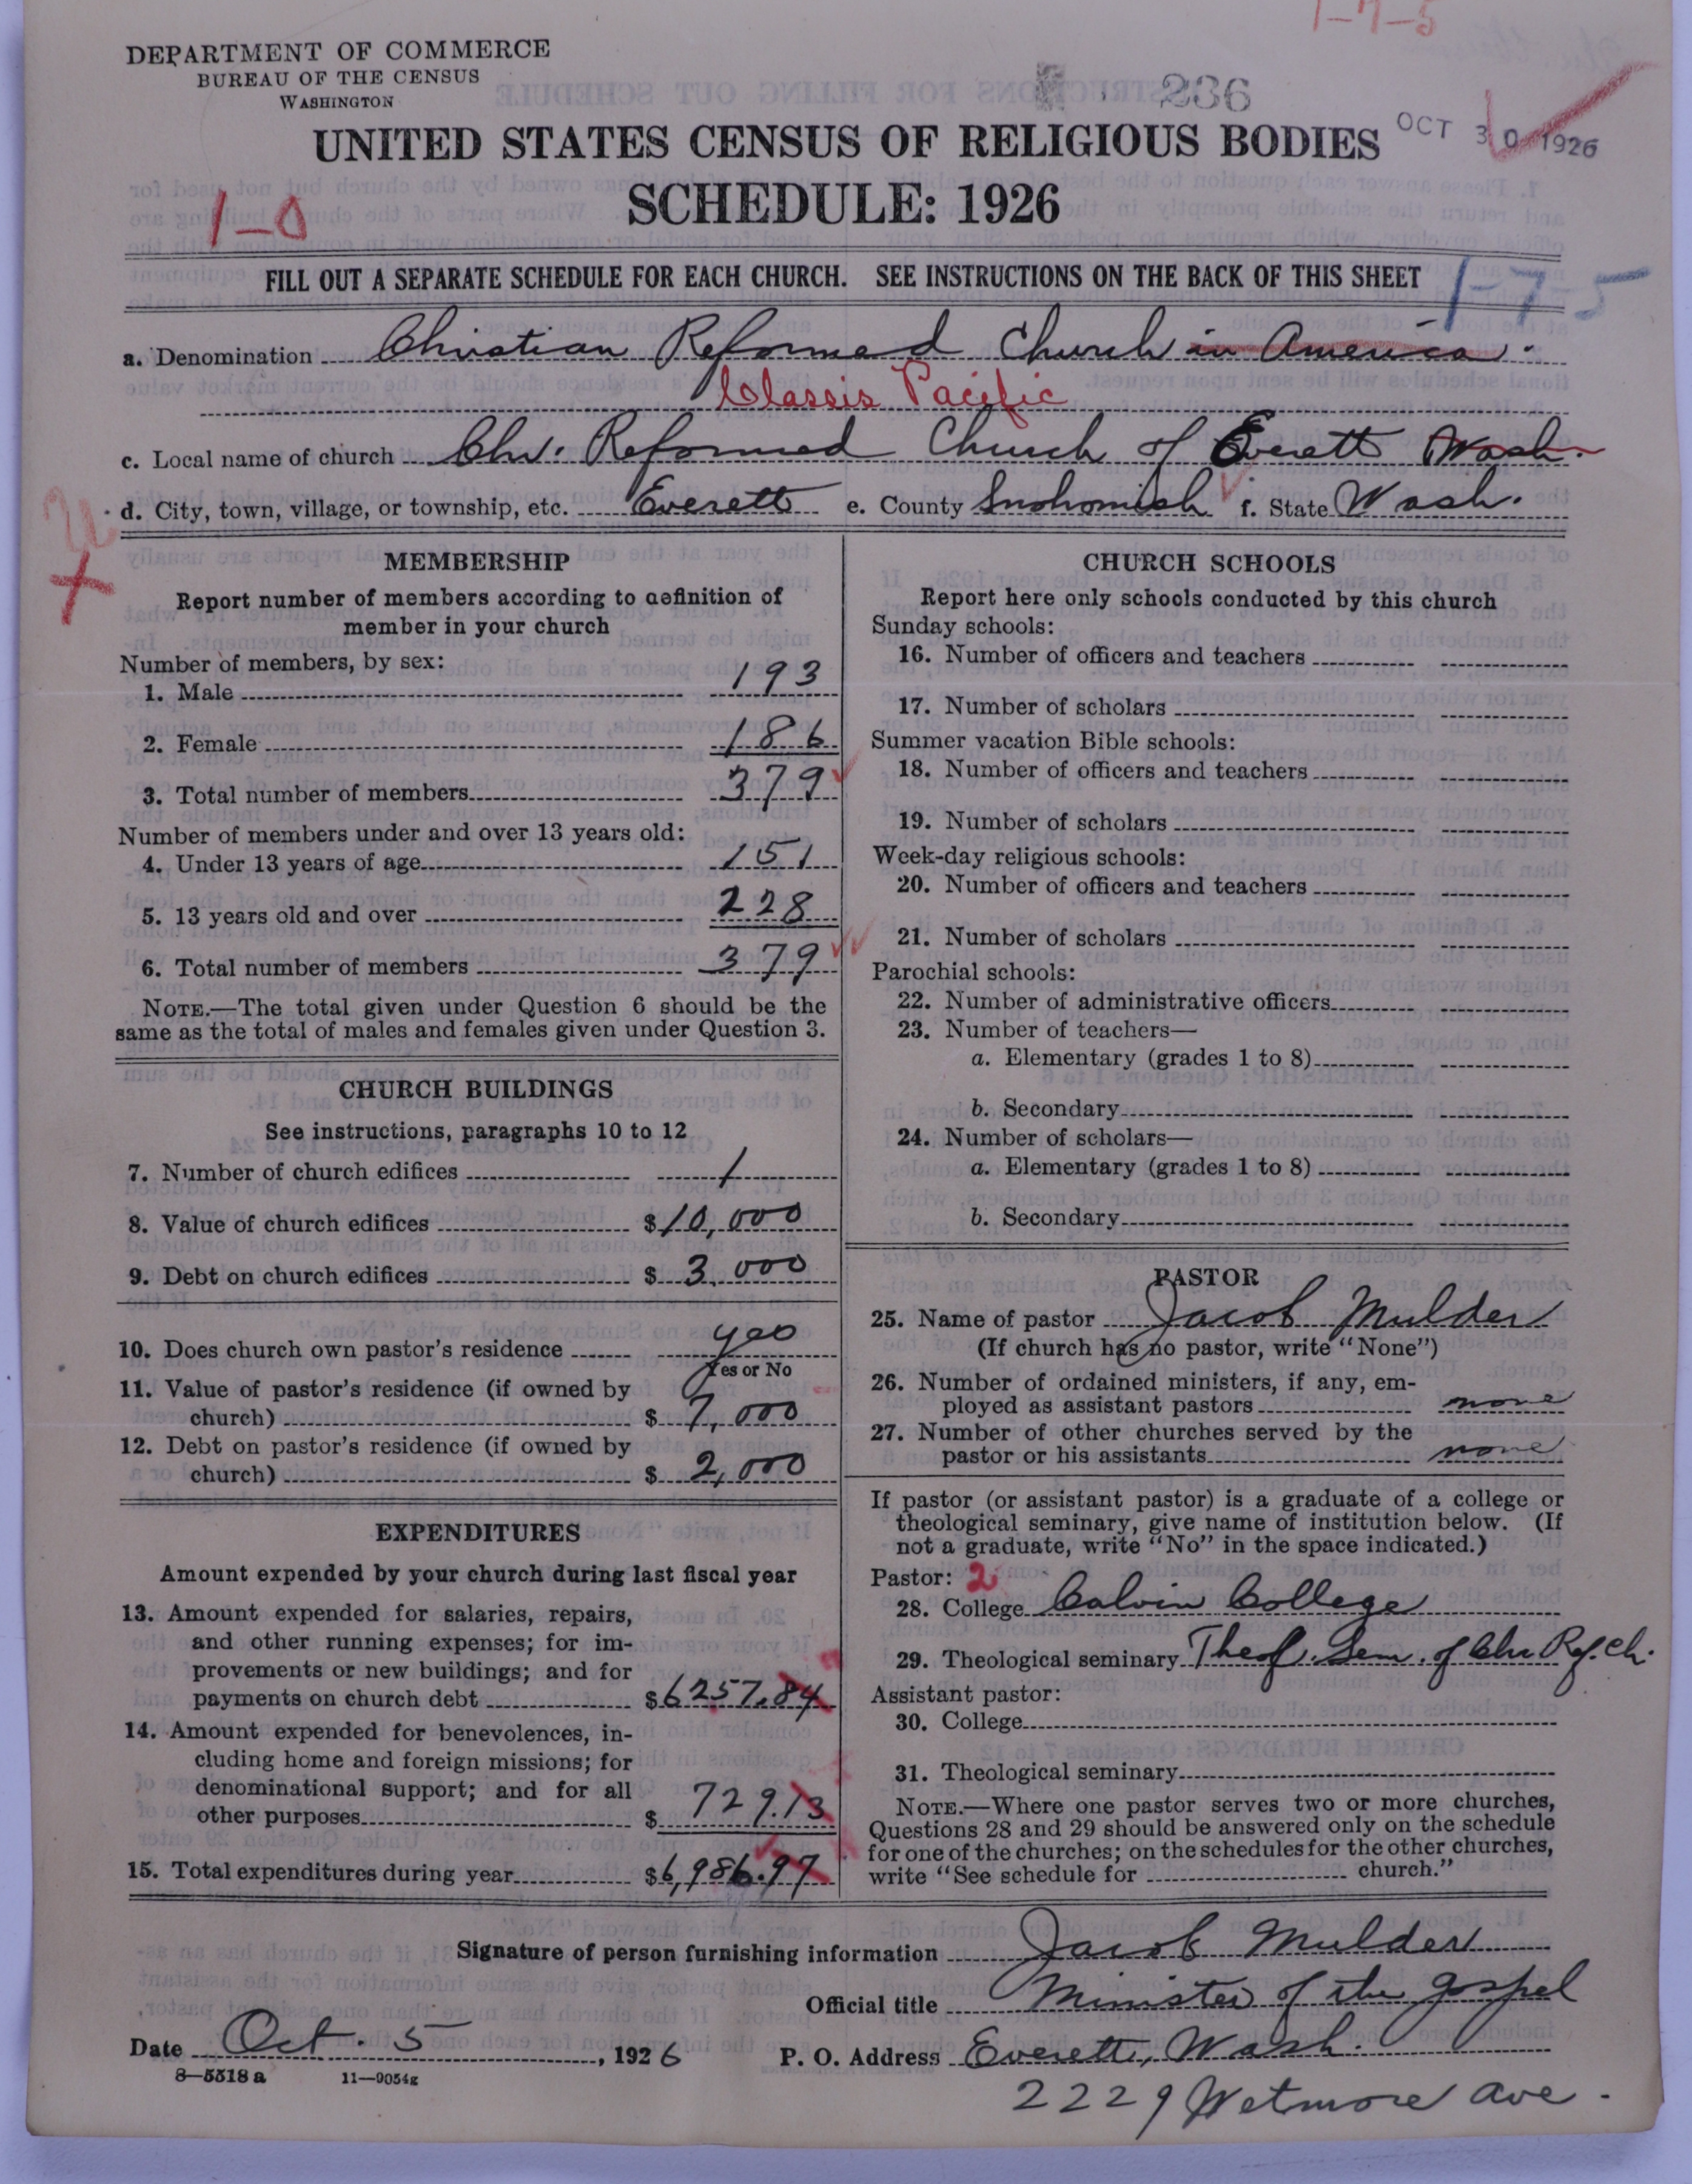 1-7-5
DEPARTMENT OF COMMERCE
BUREAU OF THE CENSUS
WASHINGTON
236
UNITED STATES CENSUS OF RELIGIOUS BODIES
OCT 30 1926
SCHEDULE: 1926
1-0
FILL OUT A SEPARATE SCHEDULE FOR EACH CHURCH. SEE INSTRUCTIONS ON THE BACK OF THIS SHEET
1-7-5
a. Denomination Christian Reformed Church in America.
Classis Pacific
c. Local name of church Chr. Reformed Church of Everett Wash.
d. City, town, village, or township, etc. Everett e. County Snohomish f. State Wash.
MEMBERSHIP
Report number of members according to definition of
member in your church
Number of members, by sex:
1. Male 193
2. Female 186
3. Total number of members 379
Number of members under and over 13 years old:
4. Under 13 years of age 151
5. 13 years old and over 228
6. Total number of members 379
NOTE.—The total given under Question 6 should be the
same as the total of males and females given under Question 3.
CHURCH BUILDINGS
See instructions, paragraphs 10 to 12
7. Number of church edifices 1
8. Value of church edifices $10,000
9. Debt on church edifices $3,000
10. Does church own pastor's residence yes
Yes or No
11. Value of pastor's residence (if owned by
church) $7,000
12. Debt on pastor's residence (if owned by
church) $2,000
EXPENDITURES
Amount expended by your church during last fiscal year
13. Amount expended for salaries, repairs,
and other running expenses; for im-
provements or new buildings; and for
payments on church debt $6257.84
14. Amount expended for benevolences, in-
cluding home and foreign missions; for
denominational support; and for all
other purposes $729.13
15. Total expenditures during year $6,986.97
CHURCH SCHOOLS
Report here only schools conducted by this church
Sunday schools:
16. Number of officers and teachers
17. Number of scholars
Summer vacation Bible schools:
18. Number of officers and teachers
19. Number of scholars
Week-day religious schools:
20. Number of officers and teachers
21. Number of scholars
Parochial schools:
22. Number of administrative officers
23. Number of teachers—
a. Elementary (grades 1 to 8)
b. Secondary
24. Number of scholars—
a. Elementary (grades 1 to 8)
b. Secondary
PASTOR
25. Name of pastor Jacob Mulder
(If church has no pastor, write "None")
26. Number of ordained ministers, if any, em-
ployed as assistant pastors none
27. Number of other churches served by the
pastor or his assistants none
If pastor (or assistant pastor) is a graduate of a college or
theological seminary, give name of institution below. (If
not a graduate, write "No" in the space indicated.)
Pastor: 2
28. College Calvin College
29. Theological seminary Theol. Sem. of Chr Ref. Ch.
Assistant pastor:
30. College
31. Theological seminary
NOTE.—Where one pastor serves two or more churches,
Questions 28 and 29 should be answered only on the schedule
for one of the churches; on the schedules for the other churches,
write "See schedule for church."
Signature of person furnishing information Jacob Mulder
Official title Minister of the gospel
Date Oct. 5, 1926 P. O. Address Everett, Wash.
8-5518a 11-9054g
2229 Wetmore Ave.